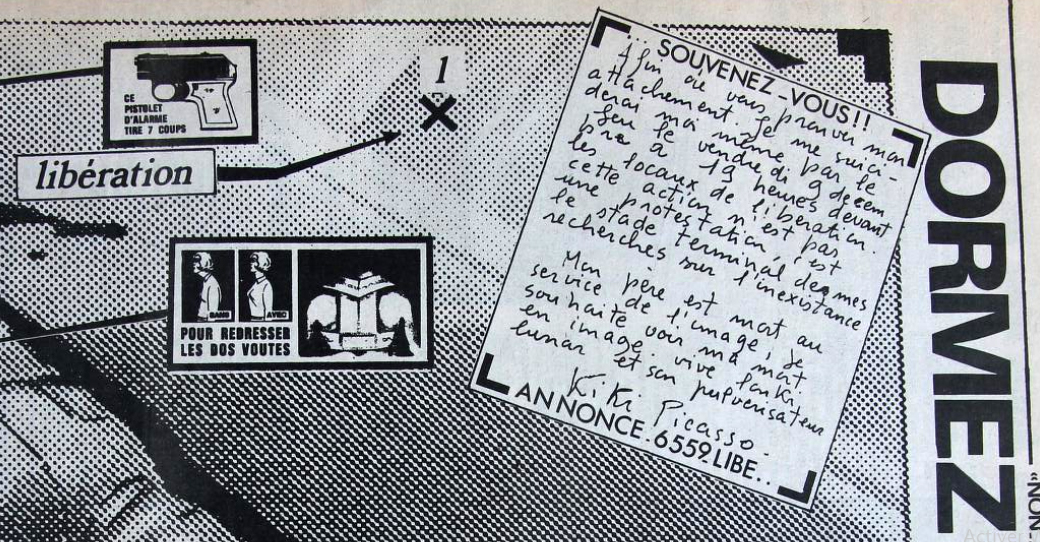 CE
PISTOLET
D'ALARME
TIRE 7 COUPS
libération
1
SANS
AVEC
POUR REDRESSER
LES DOS VOUTES
... SOUVENEZ-VOUS!!
Afin de vous prouver mon
attachement. Je me suici-
derai moi même par le
feu le vendredi 9 décem
pre à 19 heures devant
les locaux de libération.
cette action n'est pas
une protestation, c'est
le stade terminal de mes
recherches sur l'inexistance
Mon père est mort au
service de l'image, je
souhaite voir ma mort
en image. vive
lunar et son pulverisateur
KiKi Picasso.
ANNONCE.6559LIBE..
DORMEZ
«NON
Activer